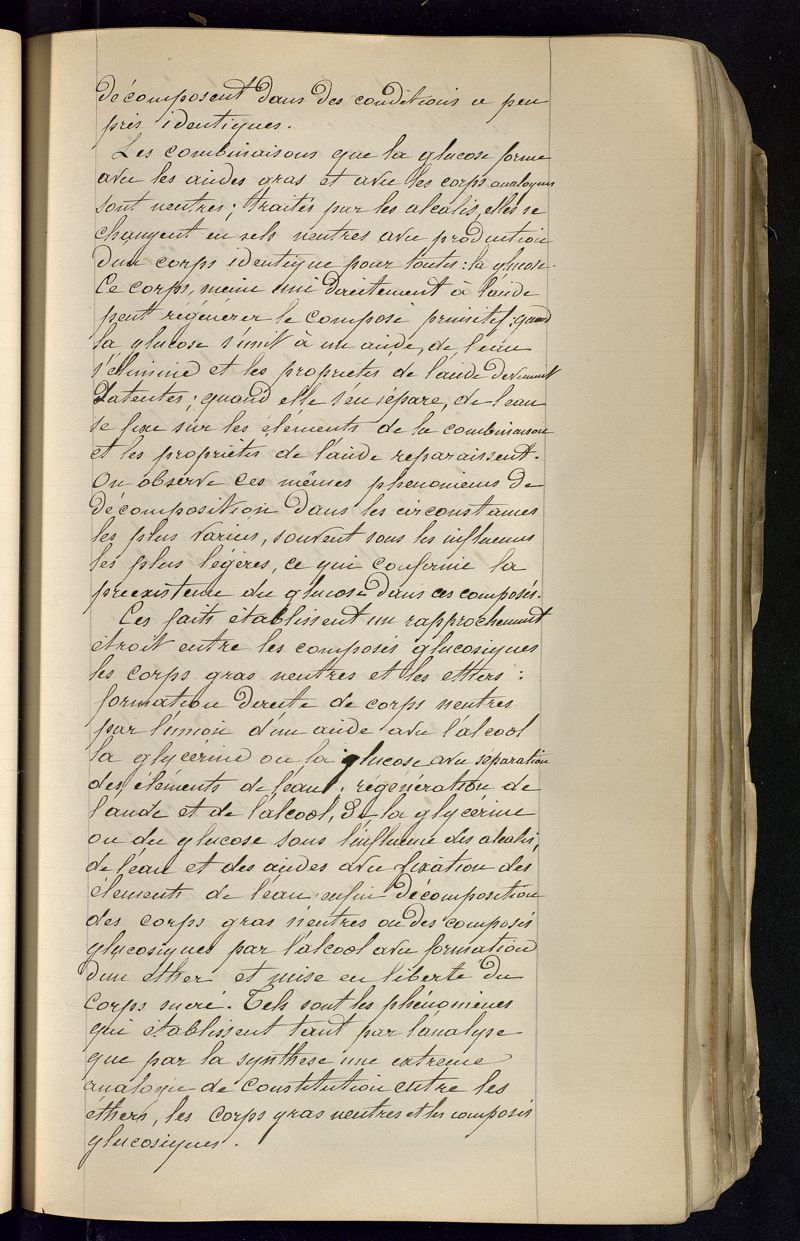 décomposent dans des conditions a peu
près identiques.
Les combinaisons que la glucose forme
avec les acides gras et avec les corps analogues
sont neutres; traités par les alcalis, elles se
changent en sels neutres avec production
d'un corps identique pour toutes: la glucose.
Ce corps, meme uni directement à l'acide
peut régénérer le composé primitif: quand
la glucose s'unit à un acide, de l'eau
s'élimine et les propriétés de l'acide deviennent
latentes; quand elle s'en sépare, de l'eau
se fixe sur les éléments de la combinaison
et les propriétés de l'acide reparaissent.
On observe ces mêmes phenomènes de
décomposition dans les circonstances
les plus variés, souvent sous les influences
les plus légères, ce qui confirme la
preexistence du glucose dans ces composés.
Ces faits établissent un rapprochement
étroit entre les composés glucosiques
les corps gras neutres et les ethers:
formation directe de corps neutres
par l'union d'un acide avec l'alcool
la glycérine ou la glucose avec séparation
des éléments de l'eau; régénération de
l'acide et de l'alcool, de la glycérine
ou du glucose sous l'influence des alcalis,
de l'eau et des acides avec fixation des
éléments de l'eau enfin décomposition
des corps gras neutres ou des composés
glucosiques par l'alcool avec formation
d'un ether et mise en liberté du
corps sucré. Tels sont les phénomènes
qui établissent tant par l'analyse
que par la synthèse une extreme
analogie de constitution entre les
éthers, les corps gras neutres et les composés
glucosiques.